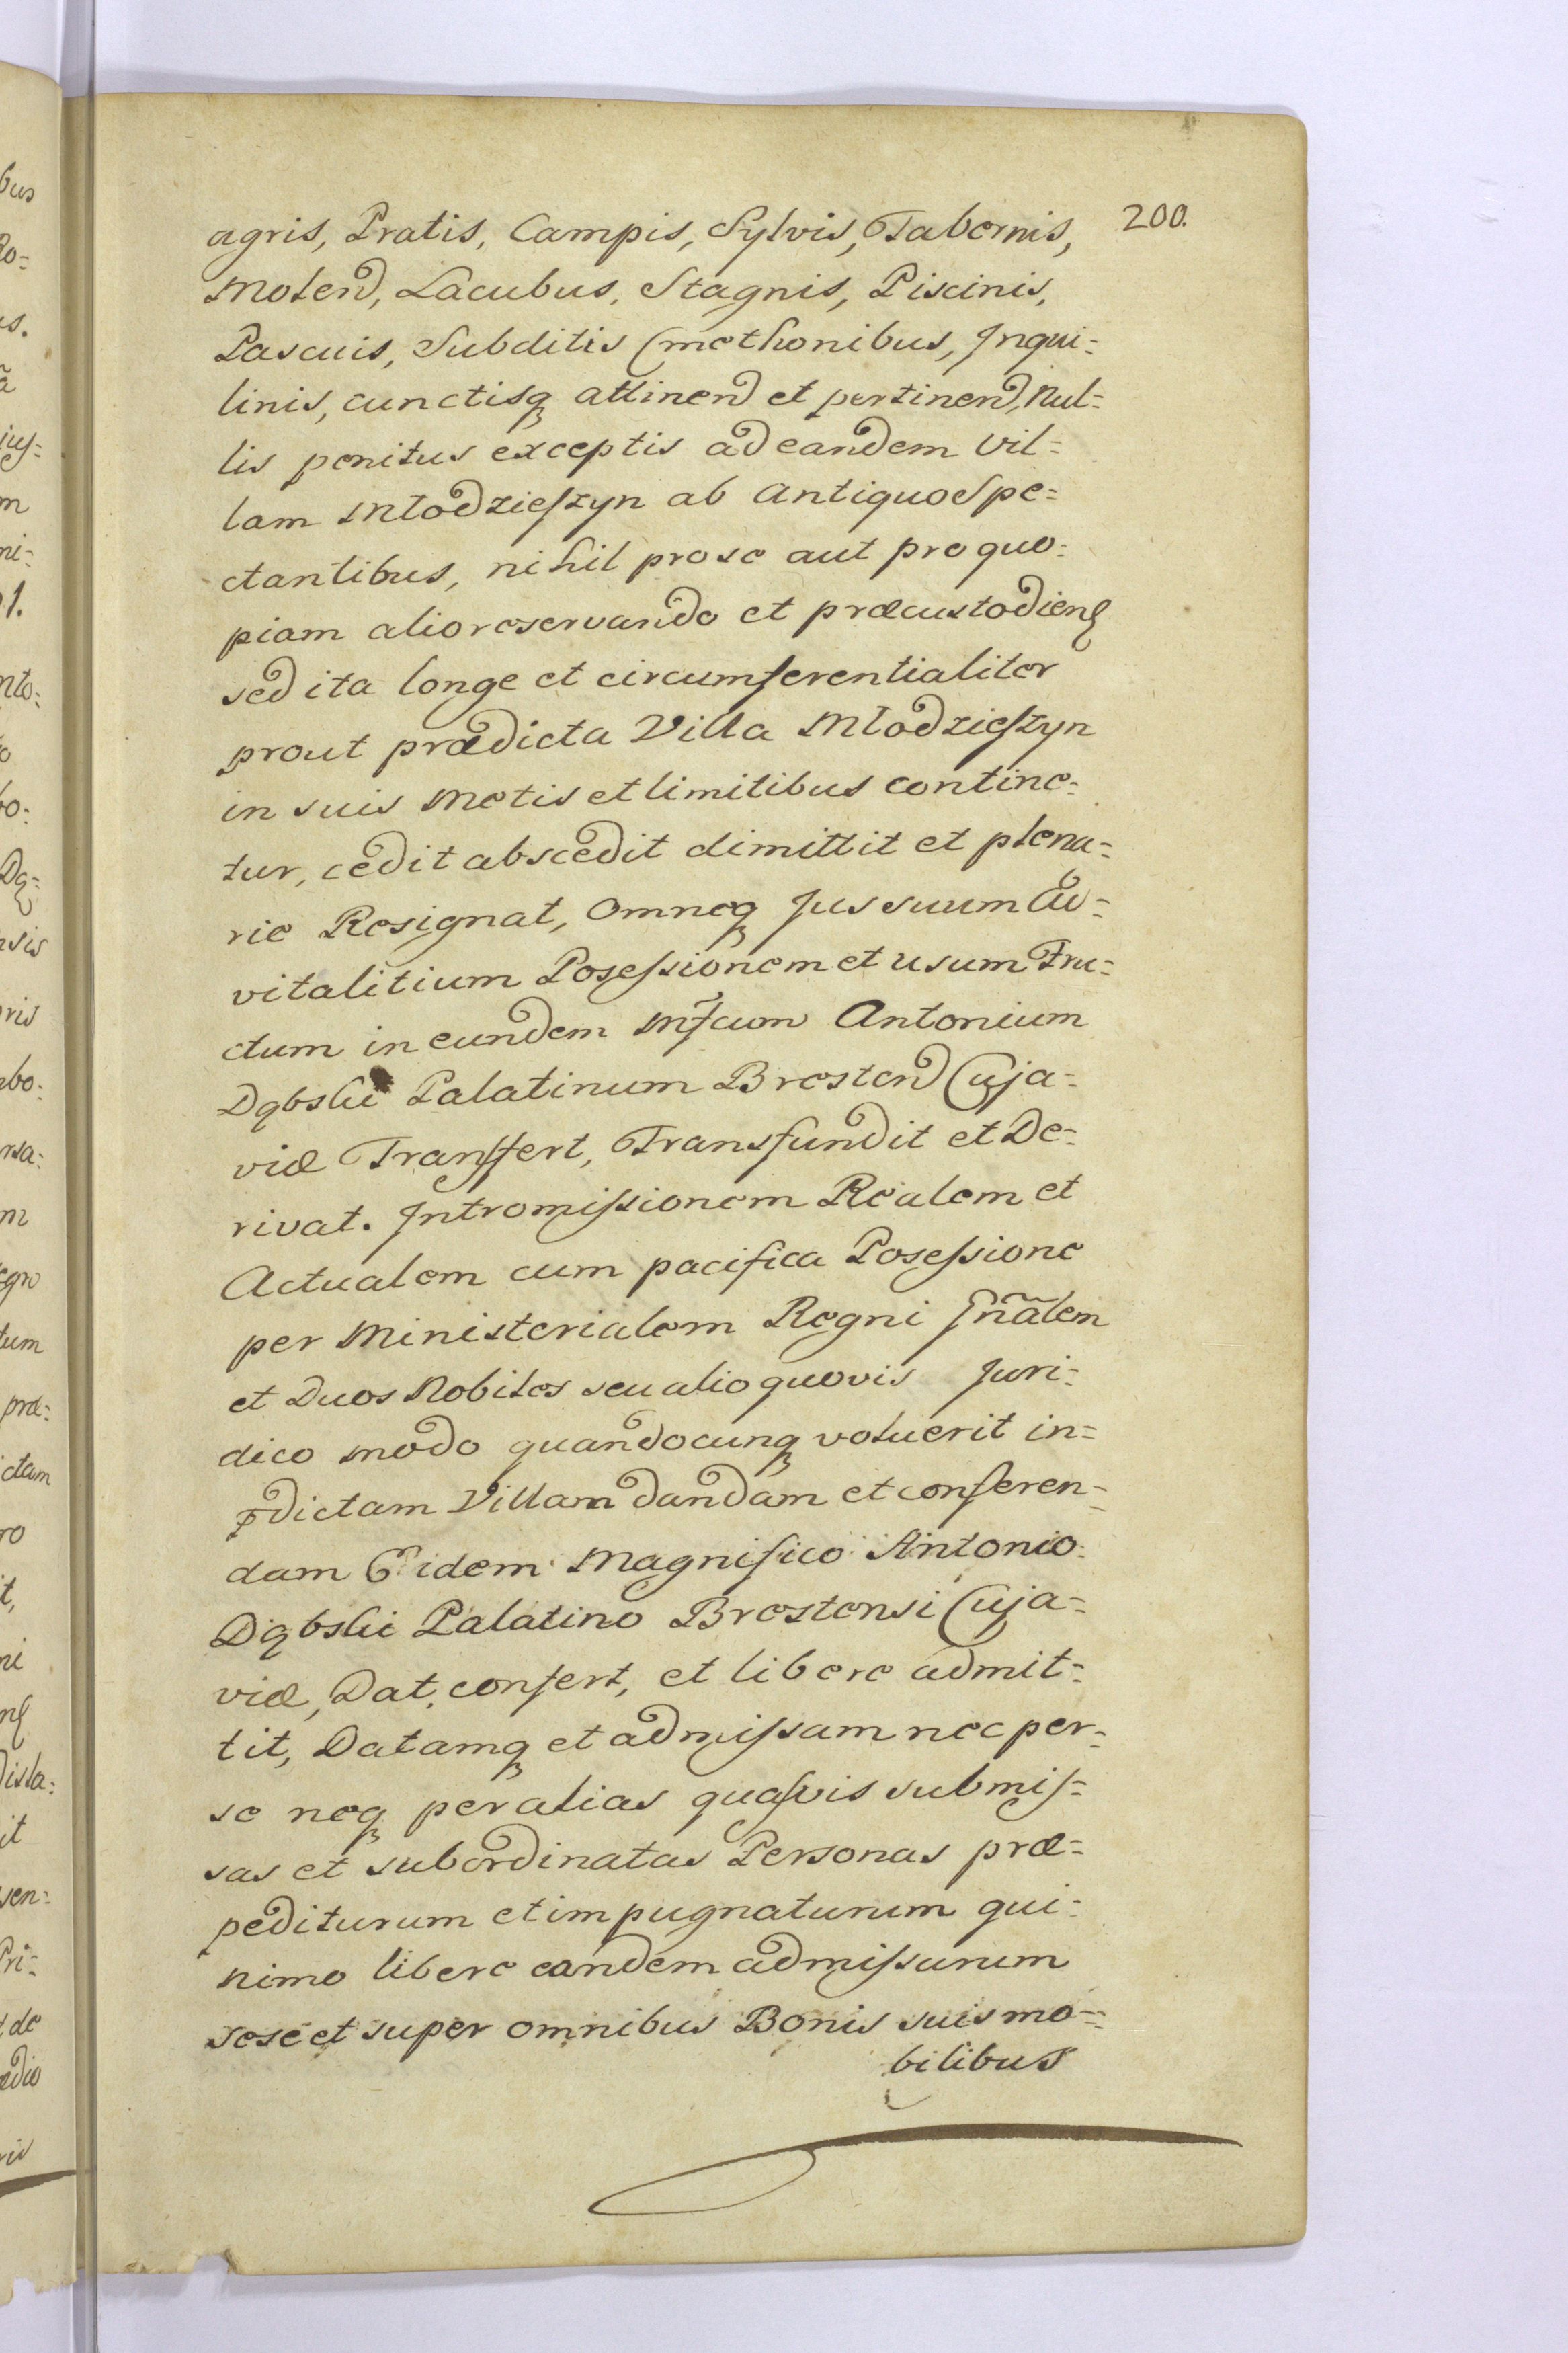 200.
agris, Pratis, Campis, Sylvis, Tabernis,
Molend, Lacubus, Stagnis, Piscinis,
Pascuis, Subditis Cmethonibus, Inqui=
linis, cunctisq attinend et pertinend, Nul=
lis penitus exceptis ad eandem Vil=
lam Młodzieszyn ab Antiquo Spe=
ctantibus, nihil pro se aut pro quo=
piam alio reservando et præcustodien
sed ita longe et circumferentialiter
prout prædicta Villa Młodzieszyn
in suis Metis et limitibus contine=
tur, cedit abscedit dimittit et plena=
rie Resignat, Omneq Jus suum Ad=
vitalitium Posessionem et usum Fru=
ctum in eundem Mfcum Antonium
Dąbski Palatinum Brestend Cuja=
viæ Transfert, Transfundit et De=
rivat. Intromissionem Realem et
Actualem cum pacifica Posessione
per Ministerialem Regni Gñalem
et Duos Nobiles seu alio quovis Juri=
dico modo quandocunq voluerit in=
pdictam Villam dandam et conferen=
dam Eidem Magnifico Antonio
Dąbski Palatino Brestensi Cuja=
viæ, Dat, confert, et libere admit=
tit, Datamq et admissam nec per=
se neq per alias quasvis submis=
sas et subordinatas Personas præ=
pediturum et impugnaturum qui=
nimo libere eandem admissurum
sese et super omnibus Bonis suis mo=
bilibus